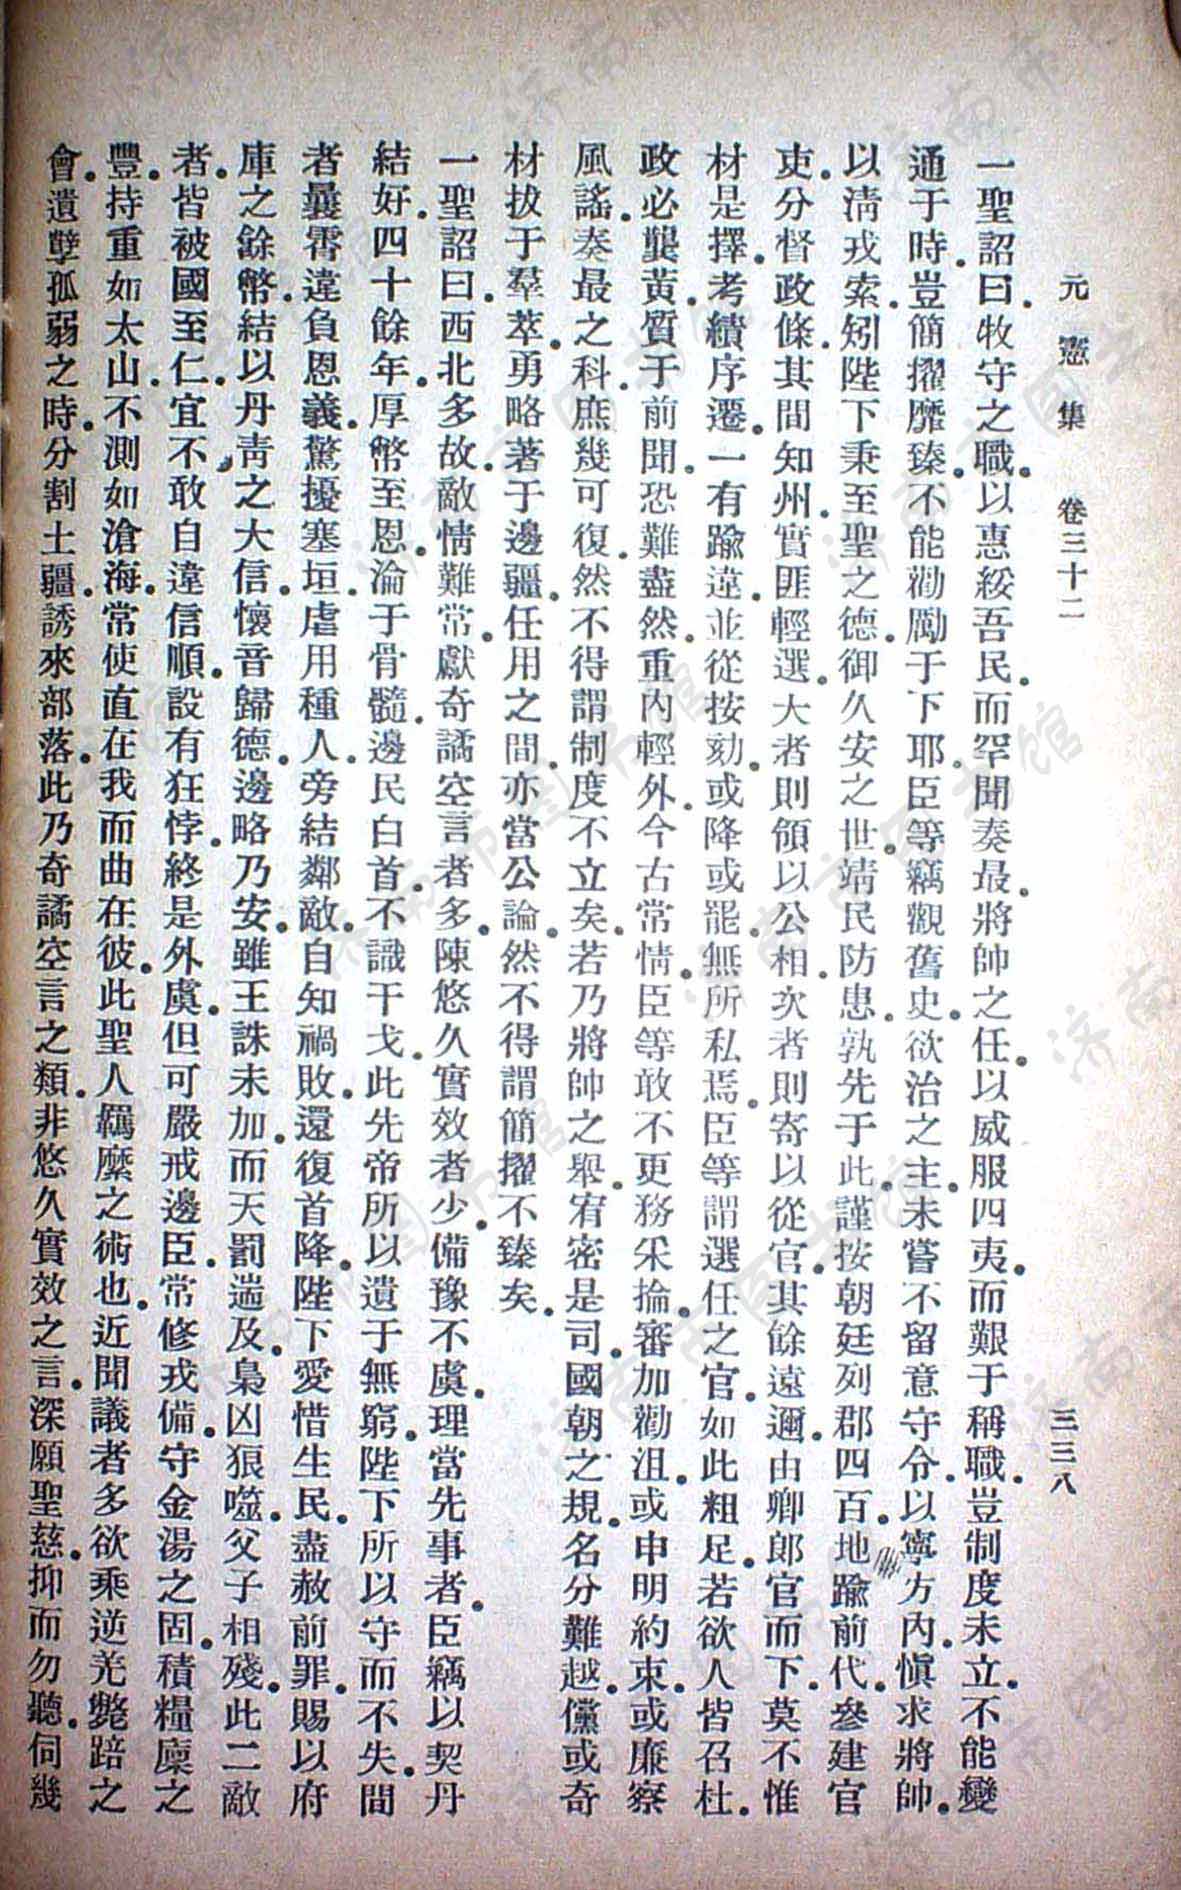 元憲集 卷三十二 三三八
一聖詔曰.牧守之職.以惠綏吾民.而罕聞奏最.將帥之任.以威服四夷.而艱于稱職.豈制度未立.不能變
通于時.豈簡擢靡臻.不能勸勵于下耶.臣等竊觀舊史.欲治之主.未嘗不留意守令.以寧方內.愼求將帥.
以淸戎索.矧陛下秉至聖之德.御久安之世.靖民防患.孰先于此.謹按朝廷列郡四百.地踰前代.參建官
吏.分督政條.其間知州.實匪輕選.大者則領以公相.次者則寄以從官.其餘遠邇.由卿郎官而下.莫不惟
材是擇.考績序遷.一有踰違.並從按劾.或降或罷.無所私焉.臣等謂選任之官.如此粗足.若欲人皆召杜.
政必龔黃.質于前聞.恐難盡然.重內輕外.今古常情.臣等敢不更務采掄.審加勸沮.或申明約束.或廉察
風謠.奏最之科.庶幾可復.然不得謂制度不立矣.若乃將帥之舉.宥密是司.國朝之規.名分難越.儻或奇
材拔于羣萃.勇略著于邊疆.任用之間.亦當公論.然不得謂簡擢不臻矣.
一聖詔曰.西北多故.敵情難常.獻奇譎空言者多.陳悠久實效者少.備豫不虞.理當先事者.臣竊以契丹
結好.四十餘年.厚幣至恩.淪于骨髓.邊民白首.不識干戈.此先帝所以遺于無窮.陛下所以守而不失.間
者曩霄違負恩義.驚擾塞垣.虐用種人.旁結鄰敵.自知禍敗.還復首降.陛下愛惜生民.盡赦前罪.賜以府
庫之餘幣.結以丹靑之大信.懷音歸德.邊略乃安.雖王誅未加.而天罰遄及.梟凶狼噬.父子相殘.此二敵
者.皆被國至仁.宜不敢自違信順.設有狂悖.終是外虞.但可嚴戒邊臣.常修戎備.守金湯之固.積糧廩之
豐.持重如太山.不測如滄海.常使直在我而曲在彼.此聖人羈縻之術也.近聞議者多欲乘逆羌斃踣之
會.遺孽孤弱之時.分割土疆.誘來部落.此乃奇譎空言之類.非悠久實效之言.深願聖慈.抑而勿聽.伺幾